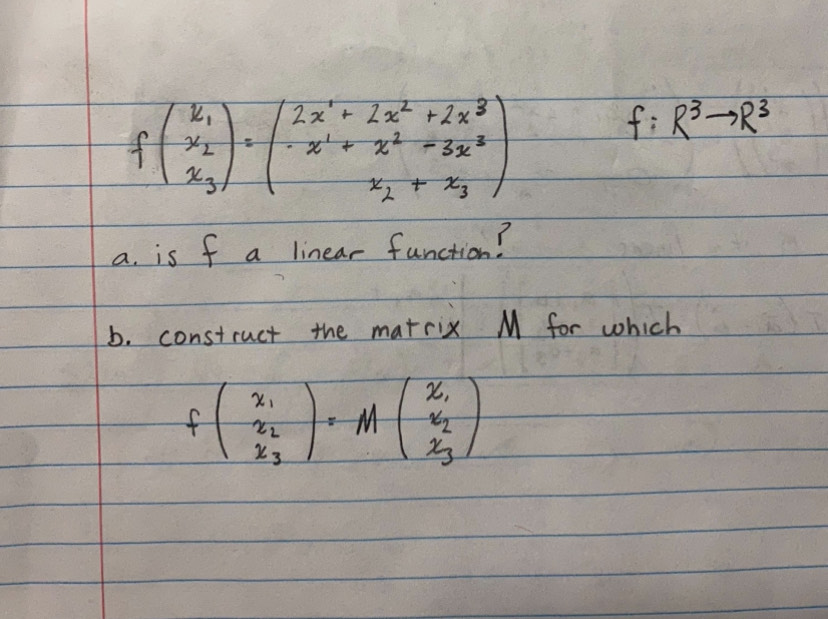 f ( x₁ x₂ x₃ ) = ( 2x¹ + 2x² + 2x³    f : R³ → R³
- x¹ + x² - 3x³
x₂ + x₃ )
a. is f a linear function?
b. construct the matrix M for which
f ( x₁ x₂ x₃ ) = M ( x₁ x₂ x₃ )